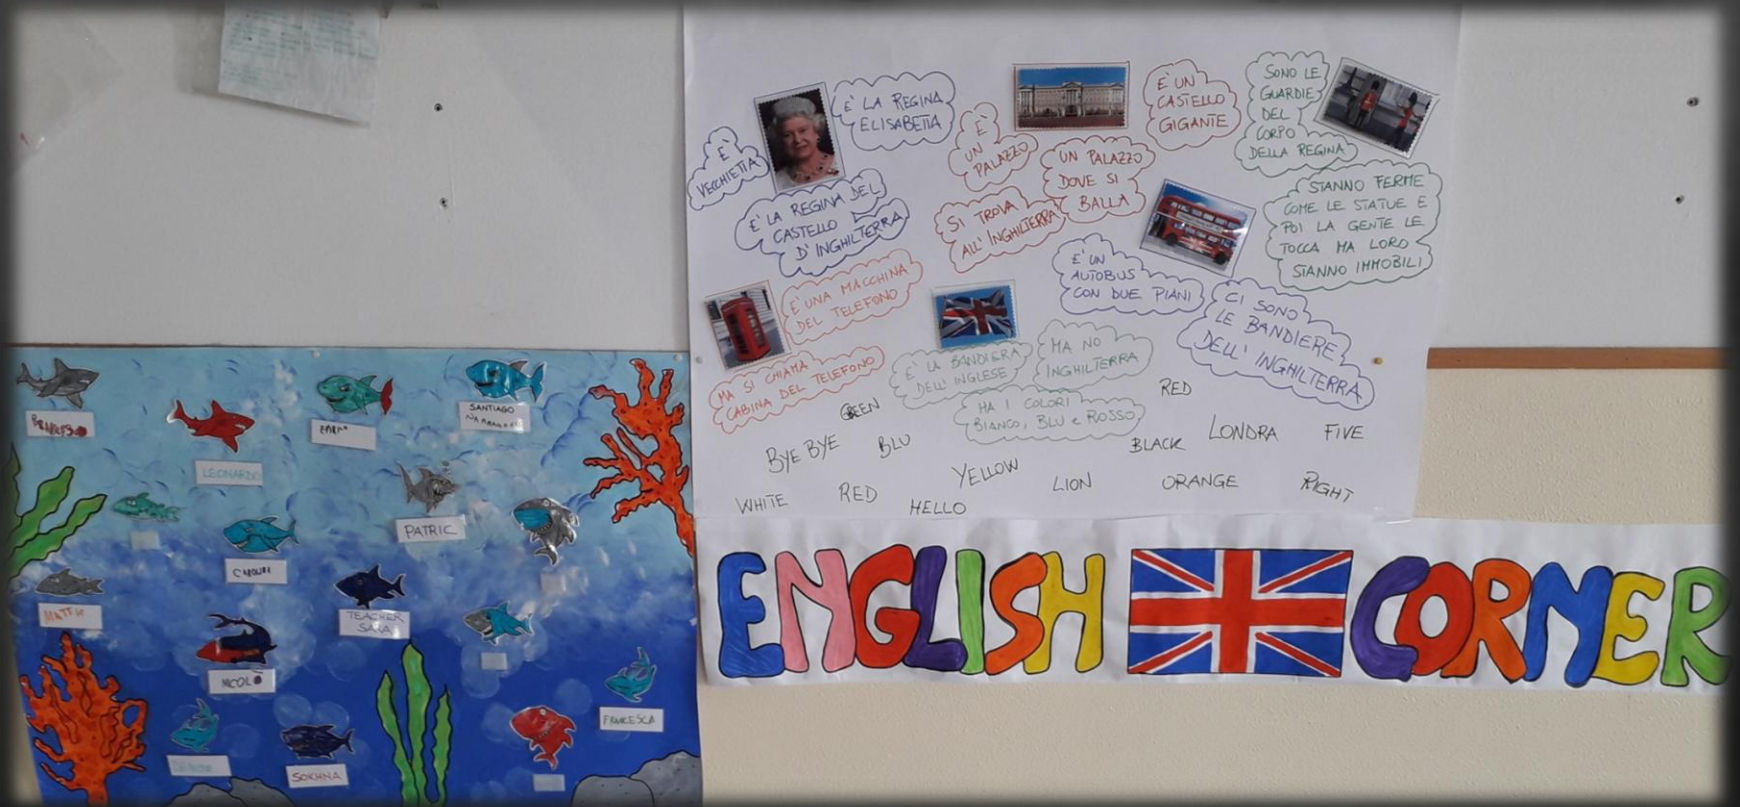 È
VECCHIETTA
È LA REGINA
ELISABETTA
È LA REGINA DEL
CASTELLO
D'INGHILTERRA
È
UN
PALAZZO
UN PALAZZO
DOVE SI
BALLA
SI TROVA
ALL'INGHILTERRA
È UN
CASTELLO
GIGANTE
SONO LE
GUARDIE
DEL
CORPO
DELLA REGINA
STANNO FERME
COME LE STATUE E
POI LA GENTE LE
TOCCA MA LORO
STANNO IMMOBILI
È UNA MACCHINA
DEL TELEFONO
MA SI CHIAMA
CABINA DEL TELEFONO
È LA BANDIERA
DELL'INGLESE
MA NO
INGHILTERRA
HA I COLORI
BIANCO, BLU e ROSSO
È UN
AUTOBUS
CON DUE PIANI
CI SONO
LE BANDIERE
DELL'INGHILTERRA
GREEN
RED
BYE BYE
BLU
BLACK
LONDRA
FIVE
YELLOW
WHITE
RED
HELLO
LION
ORANGE
RIGHT
ENGLISH CORNER
SANTIAGO
LEONARDO
PATRIC
TEACHER
SARA
NICOLÒ
FRANCESCA
SOKHNA